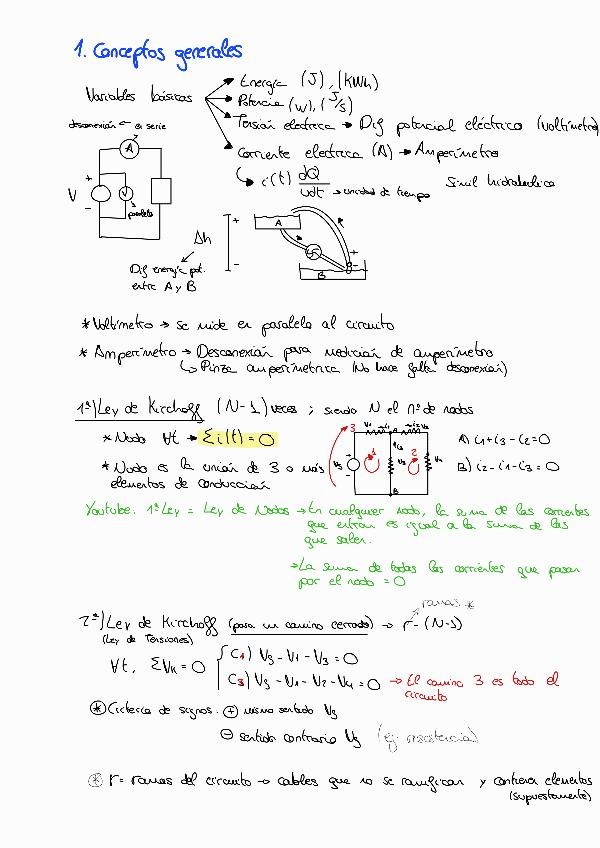 1. Conceptos generales
Variables básicas
Energía (J), (kWh)
Potencia (W), (J/s)
Tensión eléctrica → Dif potencial eléctrico (Voltímetro)
Corriente eléctrica (A) → Amperímetro
i(t) dQ/dt → unidad de tiempo
Simil hidráulico
desconexión ← en serie
A
V
+
-
V
paralelo
Δh
+
-
A
B
+
-
Dif energía pot.
entre A y B
* Voltímetro → se mide en paralelo al circuito
* Amperímetro → Desconexión para medición de amperímetro
↳ Pinza amperimétrica (No hace falta desconexión)
1ª) Ley de Kirchoff (N-1) veces ; siendo N el nº de nodos
* Nodo ∀t → Σi(t) = 0
* Nodo es la unión de 3 o más
elementos de conducción
3
V1
i1
A
i2
V2
i3
1
2
Vg
V3
V4
B
A) i1+i3-i2=0
B) i2-i1-i3=0
Youtube: 1ª Ley = Ley de Nodos → En cualquier nodo, la suma de las corrientes
que entran es igual a la suma de las
que salen.
→ La suma de todas las corrientes que pasan
por el nodo = 0
ramas *
2ª) Ley de Kirchoff (para un camino cerrado) → r-(N-1)
(Ley de Tensiones)
∀t, ΣVk = 0
C1) Vg - V1 - V3 = 0
C3) Vg - V1 - V2 - V4 = 0 → El camino 3 es todo el
circuito
* Criterio de signos: + mismo sentido Vg
- sentido contrario Vg (ej: resistencia)
* r = ramas del circuito → cables que no se ramifican y contienen elementos
(supuestamente)